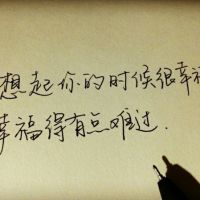 想起你的时候很幸福
幸福得有点难过.